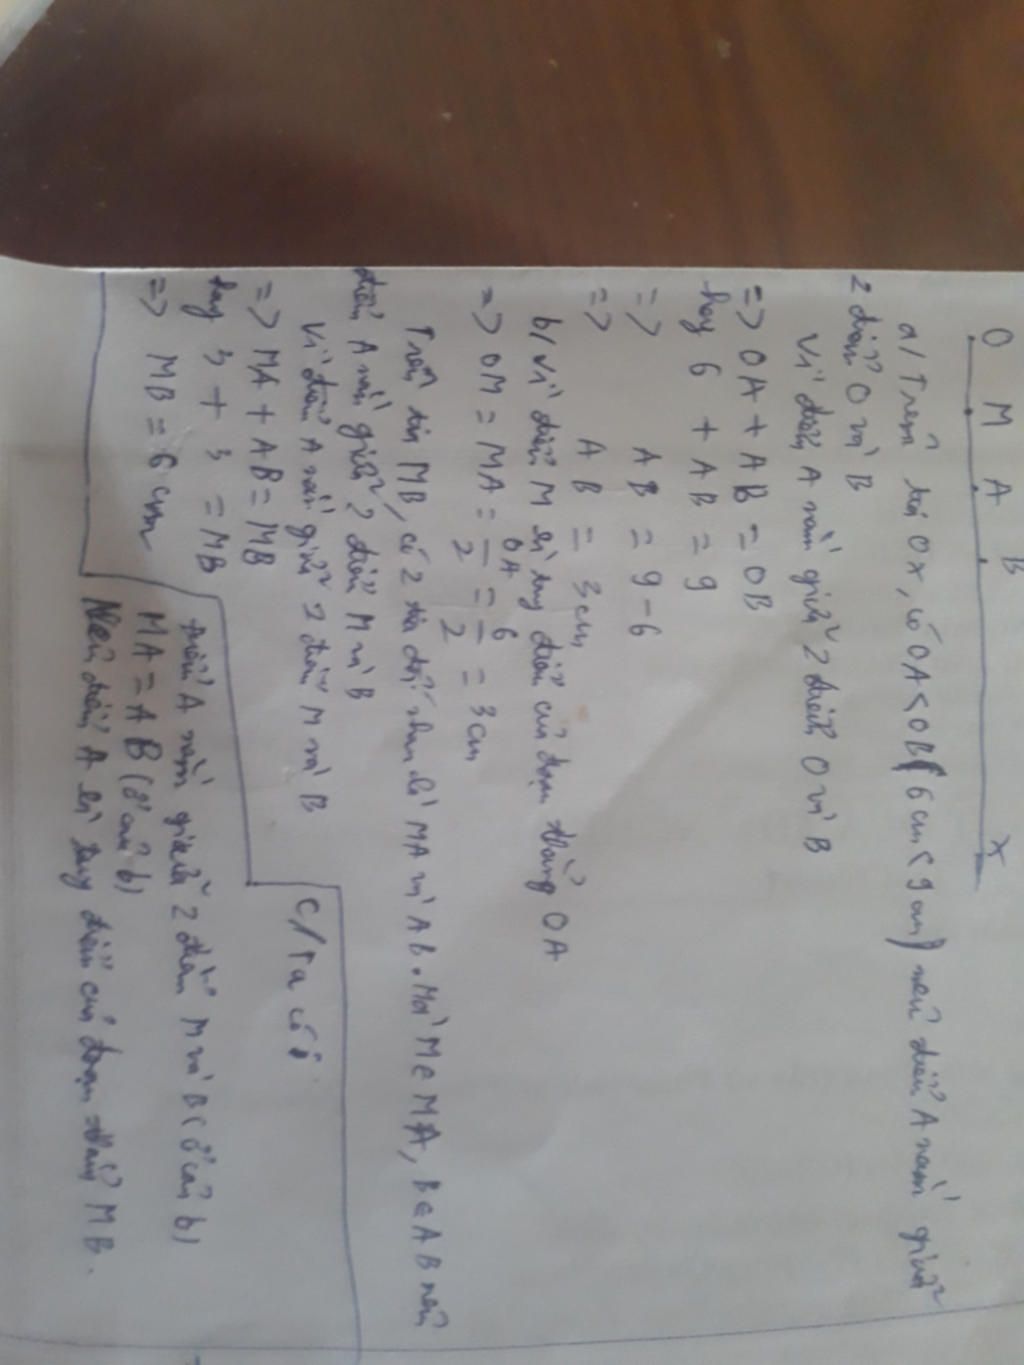 O M A B x
a/ Trên tia Ox, có OA < OB (6 cm < 9 cm) nên điểm A nằm giữa
2 điểm O và B
Vì điểm A nằm giữa 2 điểm O và B
=> OA + AB = OB
hay 6 + AB = 9
=> AB = 9 - 6
=> AB = 3 cm
b/ Vì điểm M là trung điểm của đoạn thẳng OA
=> OM = MA = OA/2 = 6/2 = 3cm
Trên tia MB, có 2 tia đối nhau là MA và AB. Mà M ∈ MA, B ∈ AB nên
điểm A nằm giữa 2 điểm M và B
Vì điểm A nằm giữa 2 điểm M và B
=> MA + AB = MB
hay 3 + 3 = MB
=> MB = 6 cm
c/ Ta có:
Điểm A nằm giữa 2 điểm M và B (ở câu b)
MA = AB (ở câu b)
Nên điểm A là trung điểm của đoạn thẳng MB.